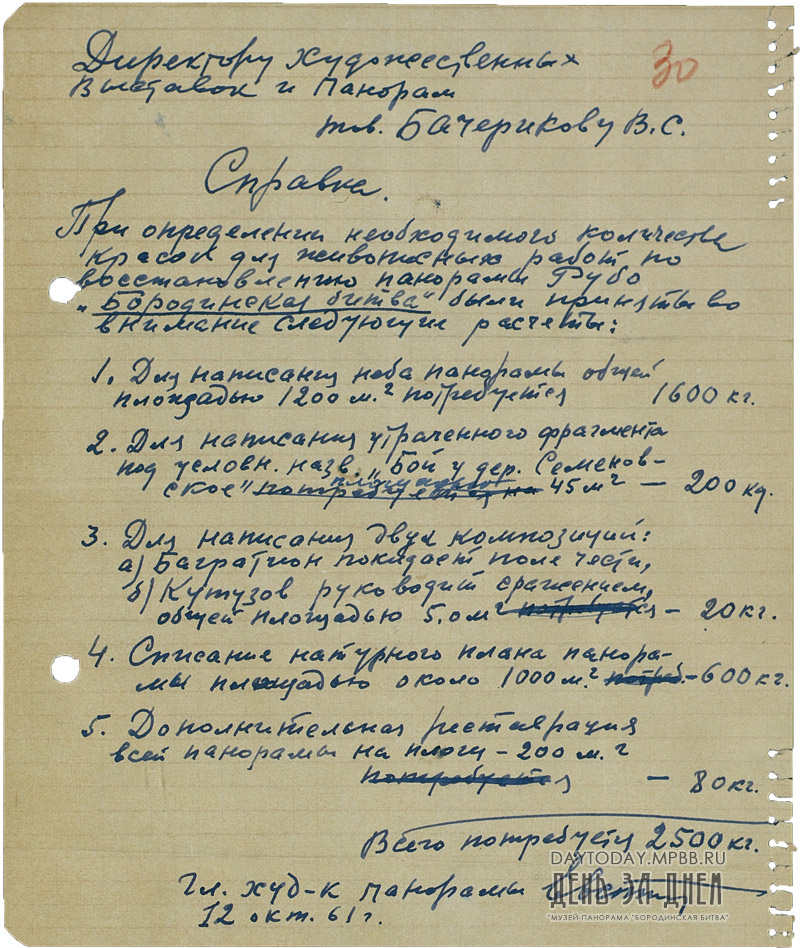 Директору художественных
30
выставок и панорам
тов. Бачерикову В.С.
Справка.
При определении необходимого количества
красок для живописных работ по
восстановлению панорамы Рубо
„Бородинская битва“ были приняты во
внимание следующие расчеты:
1. Для написания неба панорамы общей
площадью 1200 м.² потребуется 1600 кг.
2. Для написания утраченного фрагмента
под условн. назв. „Бой у дер. Семенов-
площадью
ское“ потребуется на 45 м² — 200 кг.
3. Для написания двух композиций:
а) Багратион покидает поле чести,
б) Кутузов руководит сражением,
общей площадью 5.0 м² потребуется — 20 кг.
4. Списание натурного плана панора-
мы площадью около 1000 м.² потреб. — 600 кг.
5. Дополнительная реставрация
всей панорамы на площ — 200 м.²
потребуется — 80 кг.
Всего потребуется 2500 кг.
Гл. худ-к панорамы
12 окт. 61 г.
DAYTODAY.MPBB.RU
ДЕНЬ ЗА ДНЕМ
"МУЗЕЙ-ПАНОРАМА "БОРОДИНСКАЯ БИТВА"